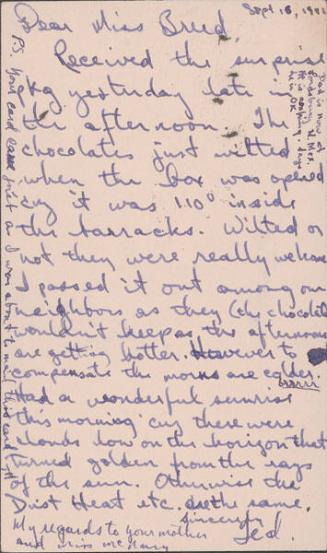 Sept 16, 1942
Dear Miss Breed,
Received the surprise
pkg yesterday late in
the afternoon. The
chocolates just wilted
when the box was opened
cuz it was 110° inside
the barracks. Wilted or
not they were really welcome
I passed it out among our
neighbors as they (the chocolate)
wouldn't keep as the afternoons
are getting hotter. However to
compensate the morns are colder.
brrrrr
Had a wonderful sunrise
this morning 'cuz there were
clouds low on the horizon that
turned golden from the rays
of the sun. Otherwise the
Dust Heat etc. are the same.
Sincerely
Ted.
My regards to your mother
and Miss
Dad is now at
Lordsburg N. Mex.
He is
He is OK
P.S. Your card came just as I was about to mail this card